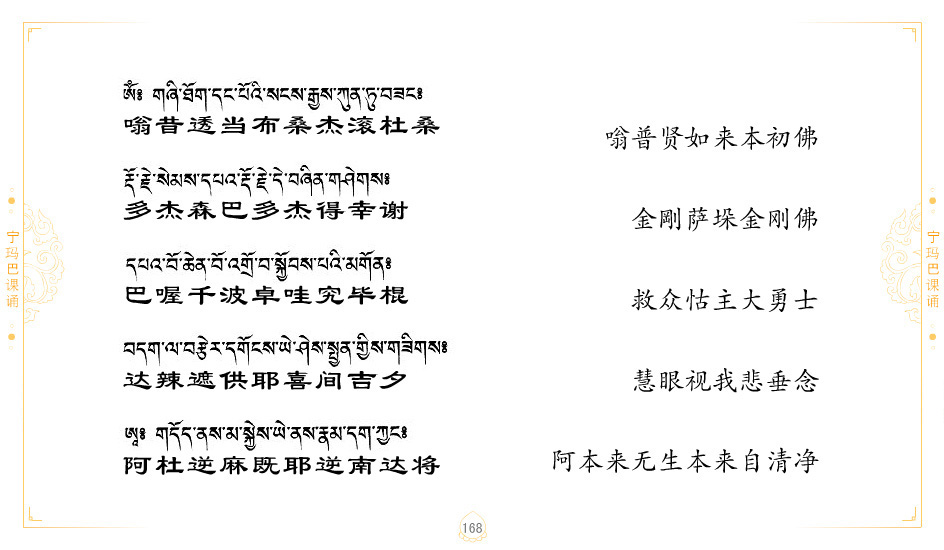 ཨོཾ༔ གཞི་ཐོག་དང་པོའི་སངས་རྒྱས་ཀུན་ཏུ་བཟང་༔
嗡昔透当布桑杰滚杜桑
嗡普贤如来本初佛
རྡོ་རྗེ་སེམས་དཔའ་རྡོ་རྗེ་དེ་བཞིན་གཤེགས༔
多杰森巴多杰得幸谢
金刚萨垛金刚佛
དཔའ་བོ་ཆེན་པོ་འགྲོ་བ་སྐྱོབས་པའི་མགོན༔
巴喔千波卓哇究毕棍
救众怙主大勇士
བདག་ལ་བརྩེར་དགོངས་ཡེ་ཤེས་སྤྱན་གྱིས་གཟིགས༔
达辣遮供耶喜间吉夕
慧眼视我悲垂念
ཨཱ༔ གདོད་ནས་མ་སྐྱེས་ཡེ་ནས་རྣམ་དག་ཀྱང་༔
阿杜逆麻既耶逆南达将
阿本来无生本来自清净
宁玛巴课诵
宁玛巴课诵
168